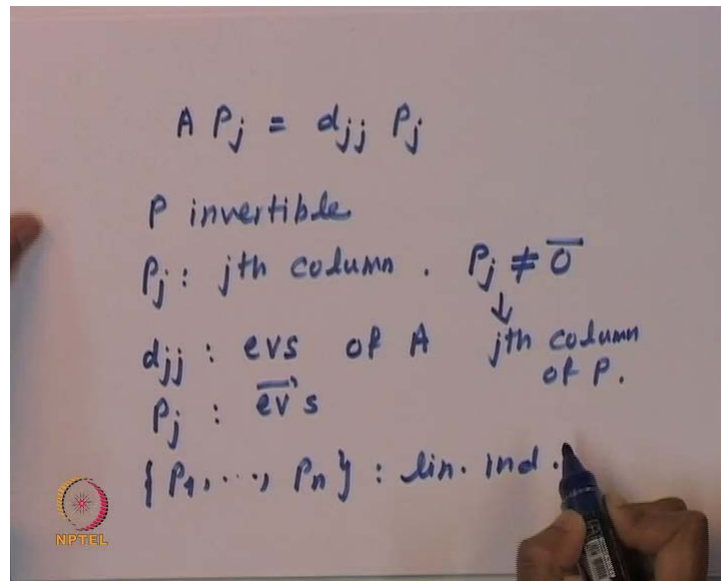 A Pj = djj Pj
P invertible
Pj : jth column . Pj ≠ 0̅
↓
djj : evs of A jth column
of P.
Pj : e̅v̅'s
{P1, ..., Pn} : lin. ind.
NPTEL